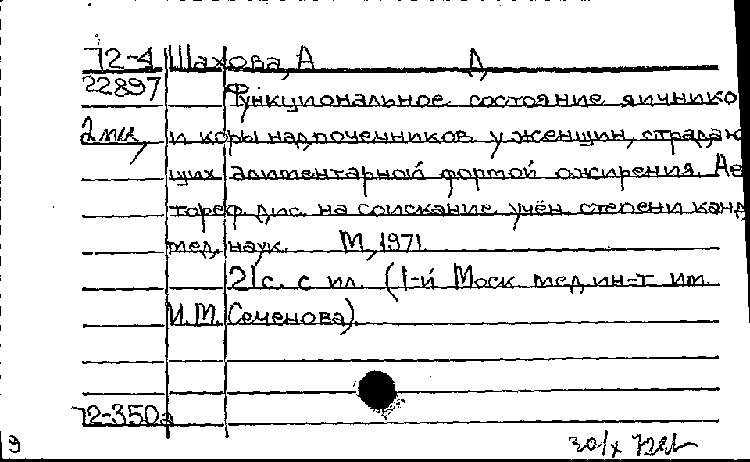 72-4 Шахова, А Д,
22897 Функциональное состояние яичнико
2 экз, и коры надпочечников у женщин, страдаю
щих алиментарной формой ожирения. Ав
тореф. дис. на соискание учён. степени канд
мед. наук. М., 1971
21с. с ил. (1-й Моск. мед. ин-т им.
И.М. Сеченова).
72-350а
9